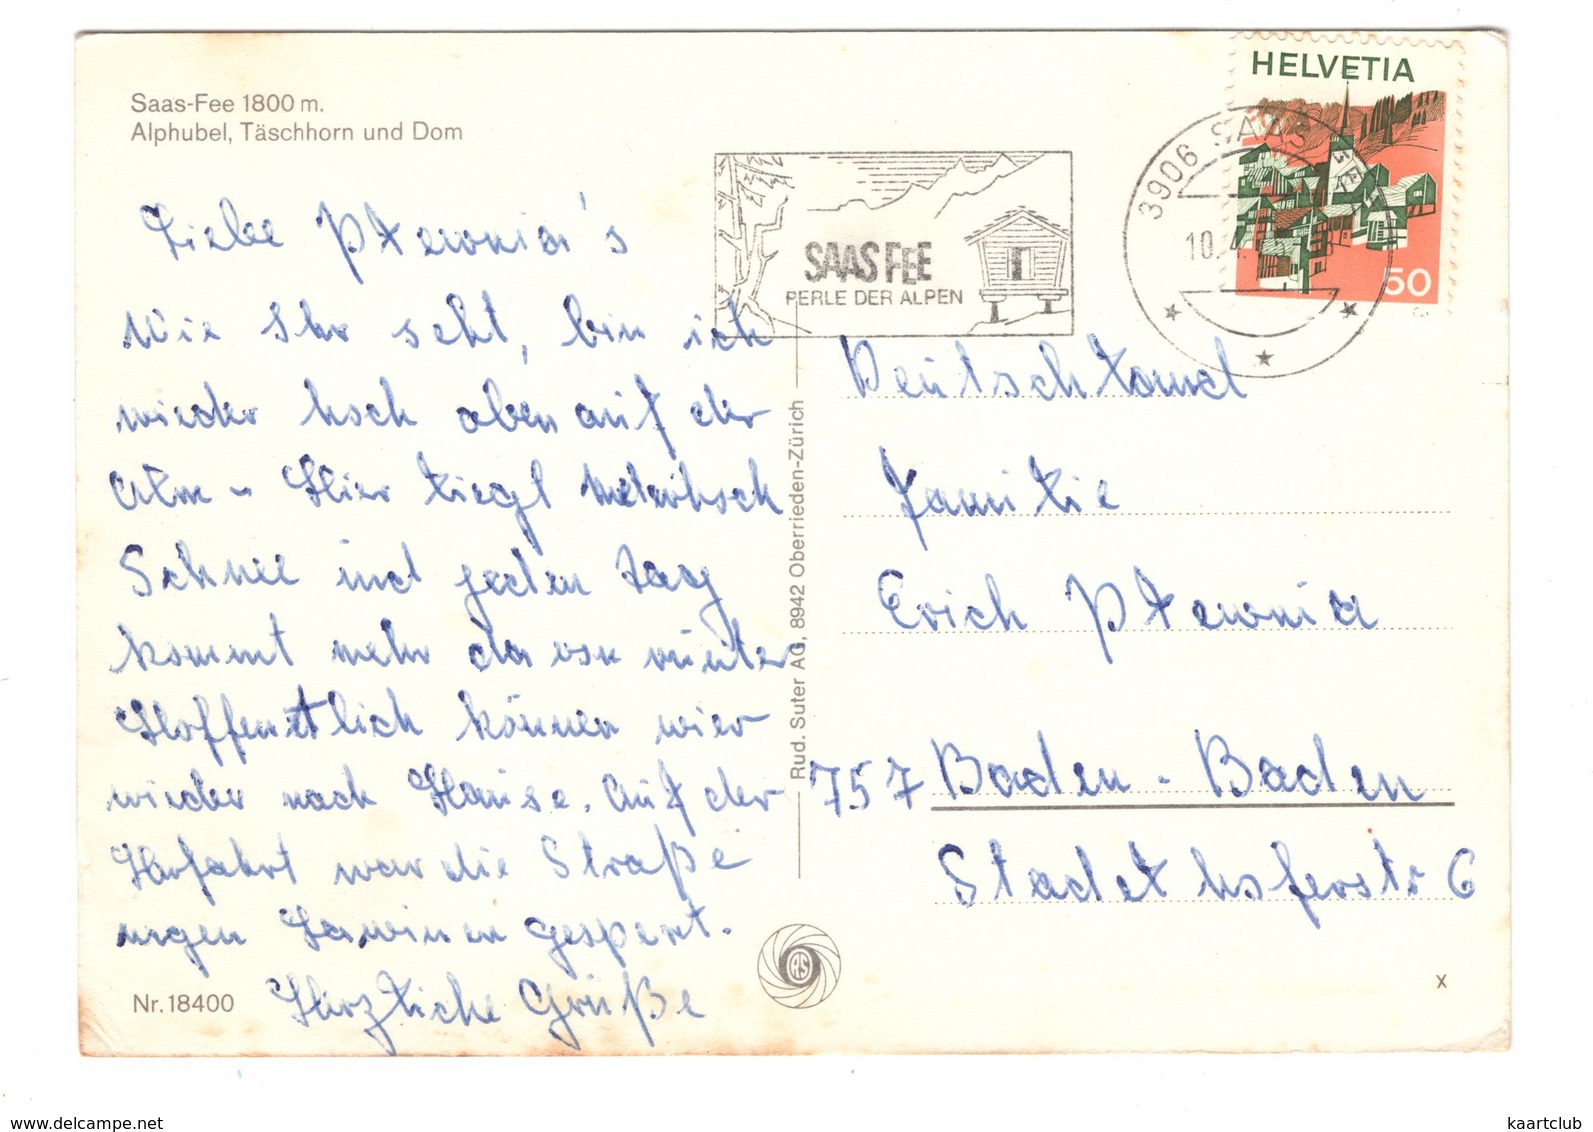 Saas-Fee 1800 m.
Alphubel, Täschhorn und Dom
Liebe Plewnia's
Wie Ihr seht, bin ich
wieder hoch oben auf der
Alm - Hier liegt meterhoch
Schnee und jeden Tag
kommt mehr davon runter
Hoffentlich können wier
wieder nach Hause. Auf der
Herfahrt war die Straße
wegen Lawinen gesperrt.
Herzliche Grüße
Nr. 18400
Rud. Suter AG, 8942 Oberrieden-Zürich
SAAS FEE
PERLE DER ALPEN
3906 SAAS FEE
HELVETIA
50
Deutschland
Familie
Erich Plewnia
757 Baden-Baden
Stadelhoferstr 6
RS
X
www.delcampe.net
kaartclub